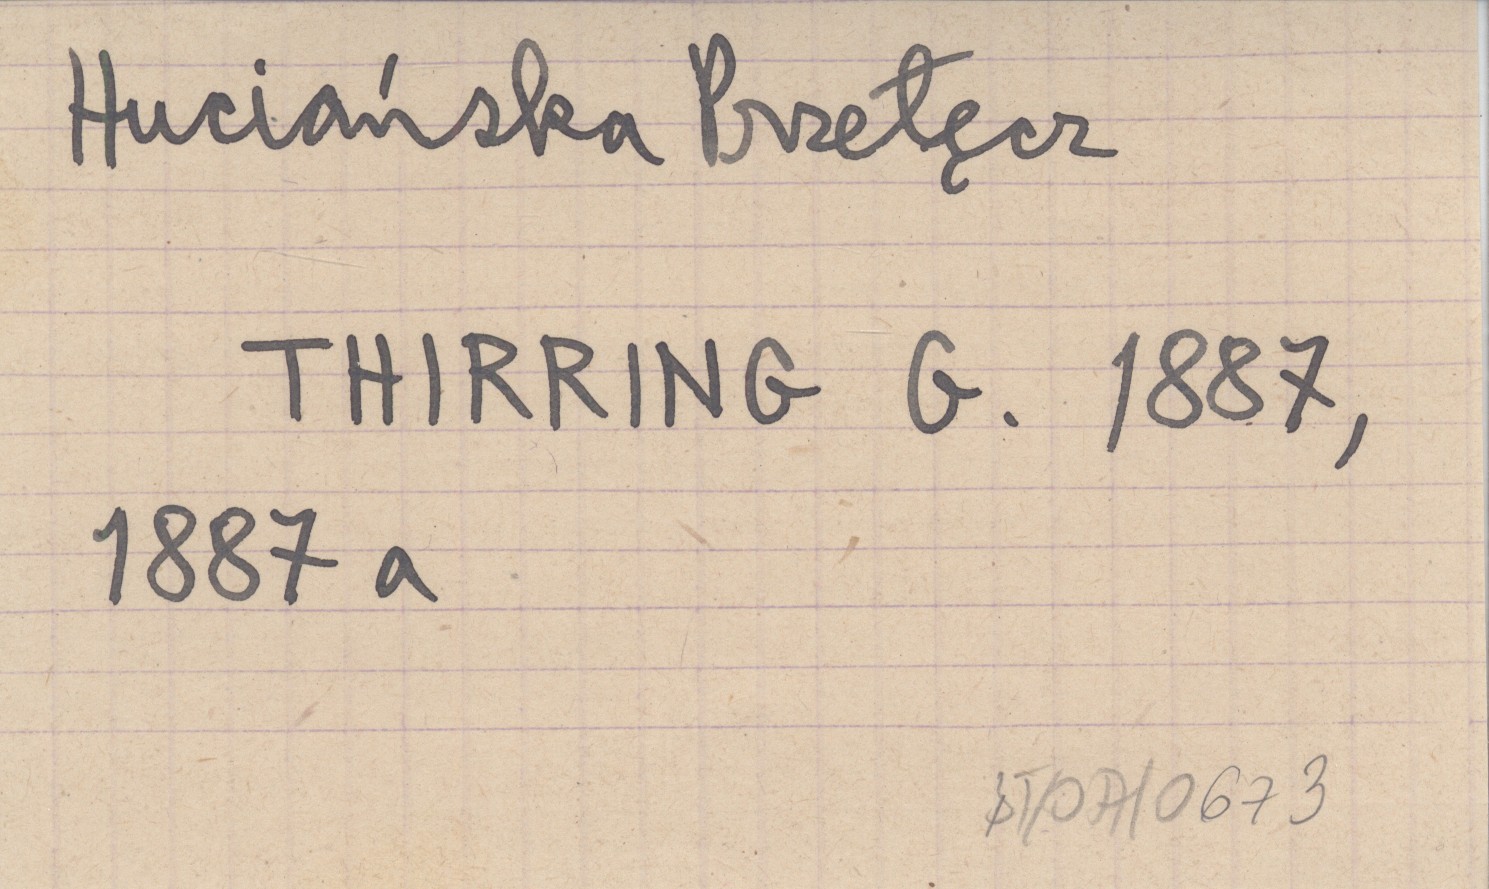 Huciańska Przełęcz
THIRRING G. 1887,
1887 a